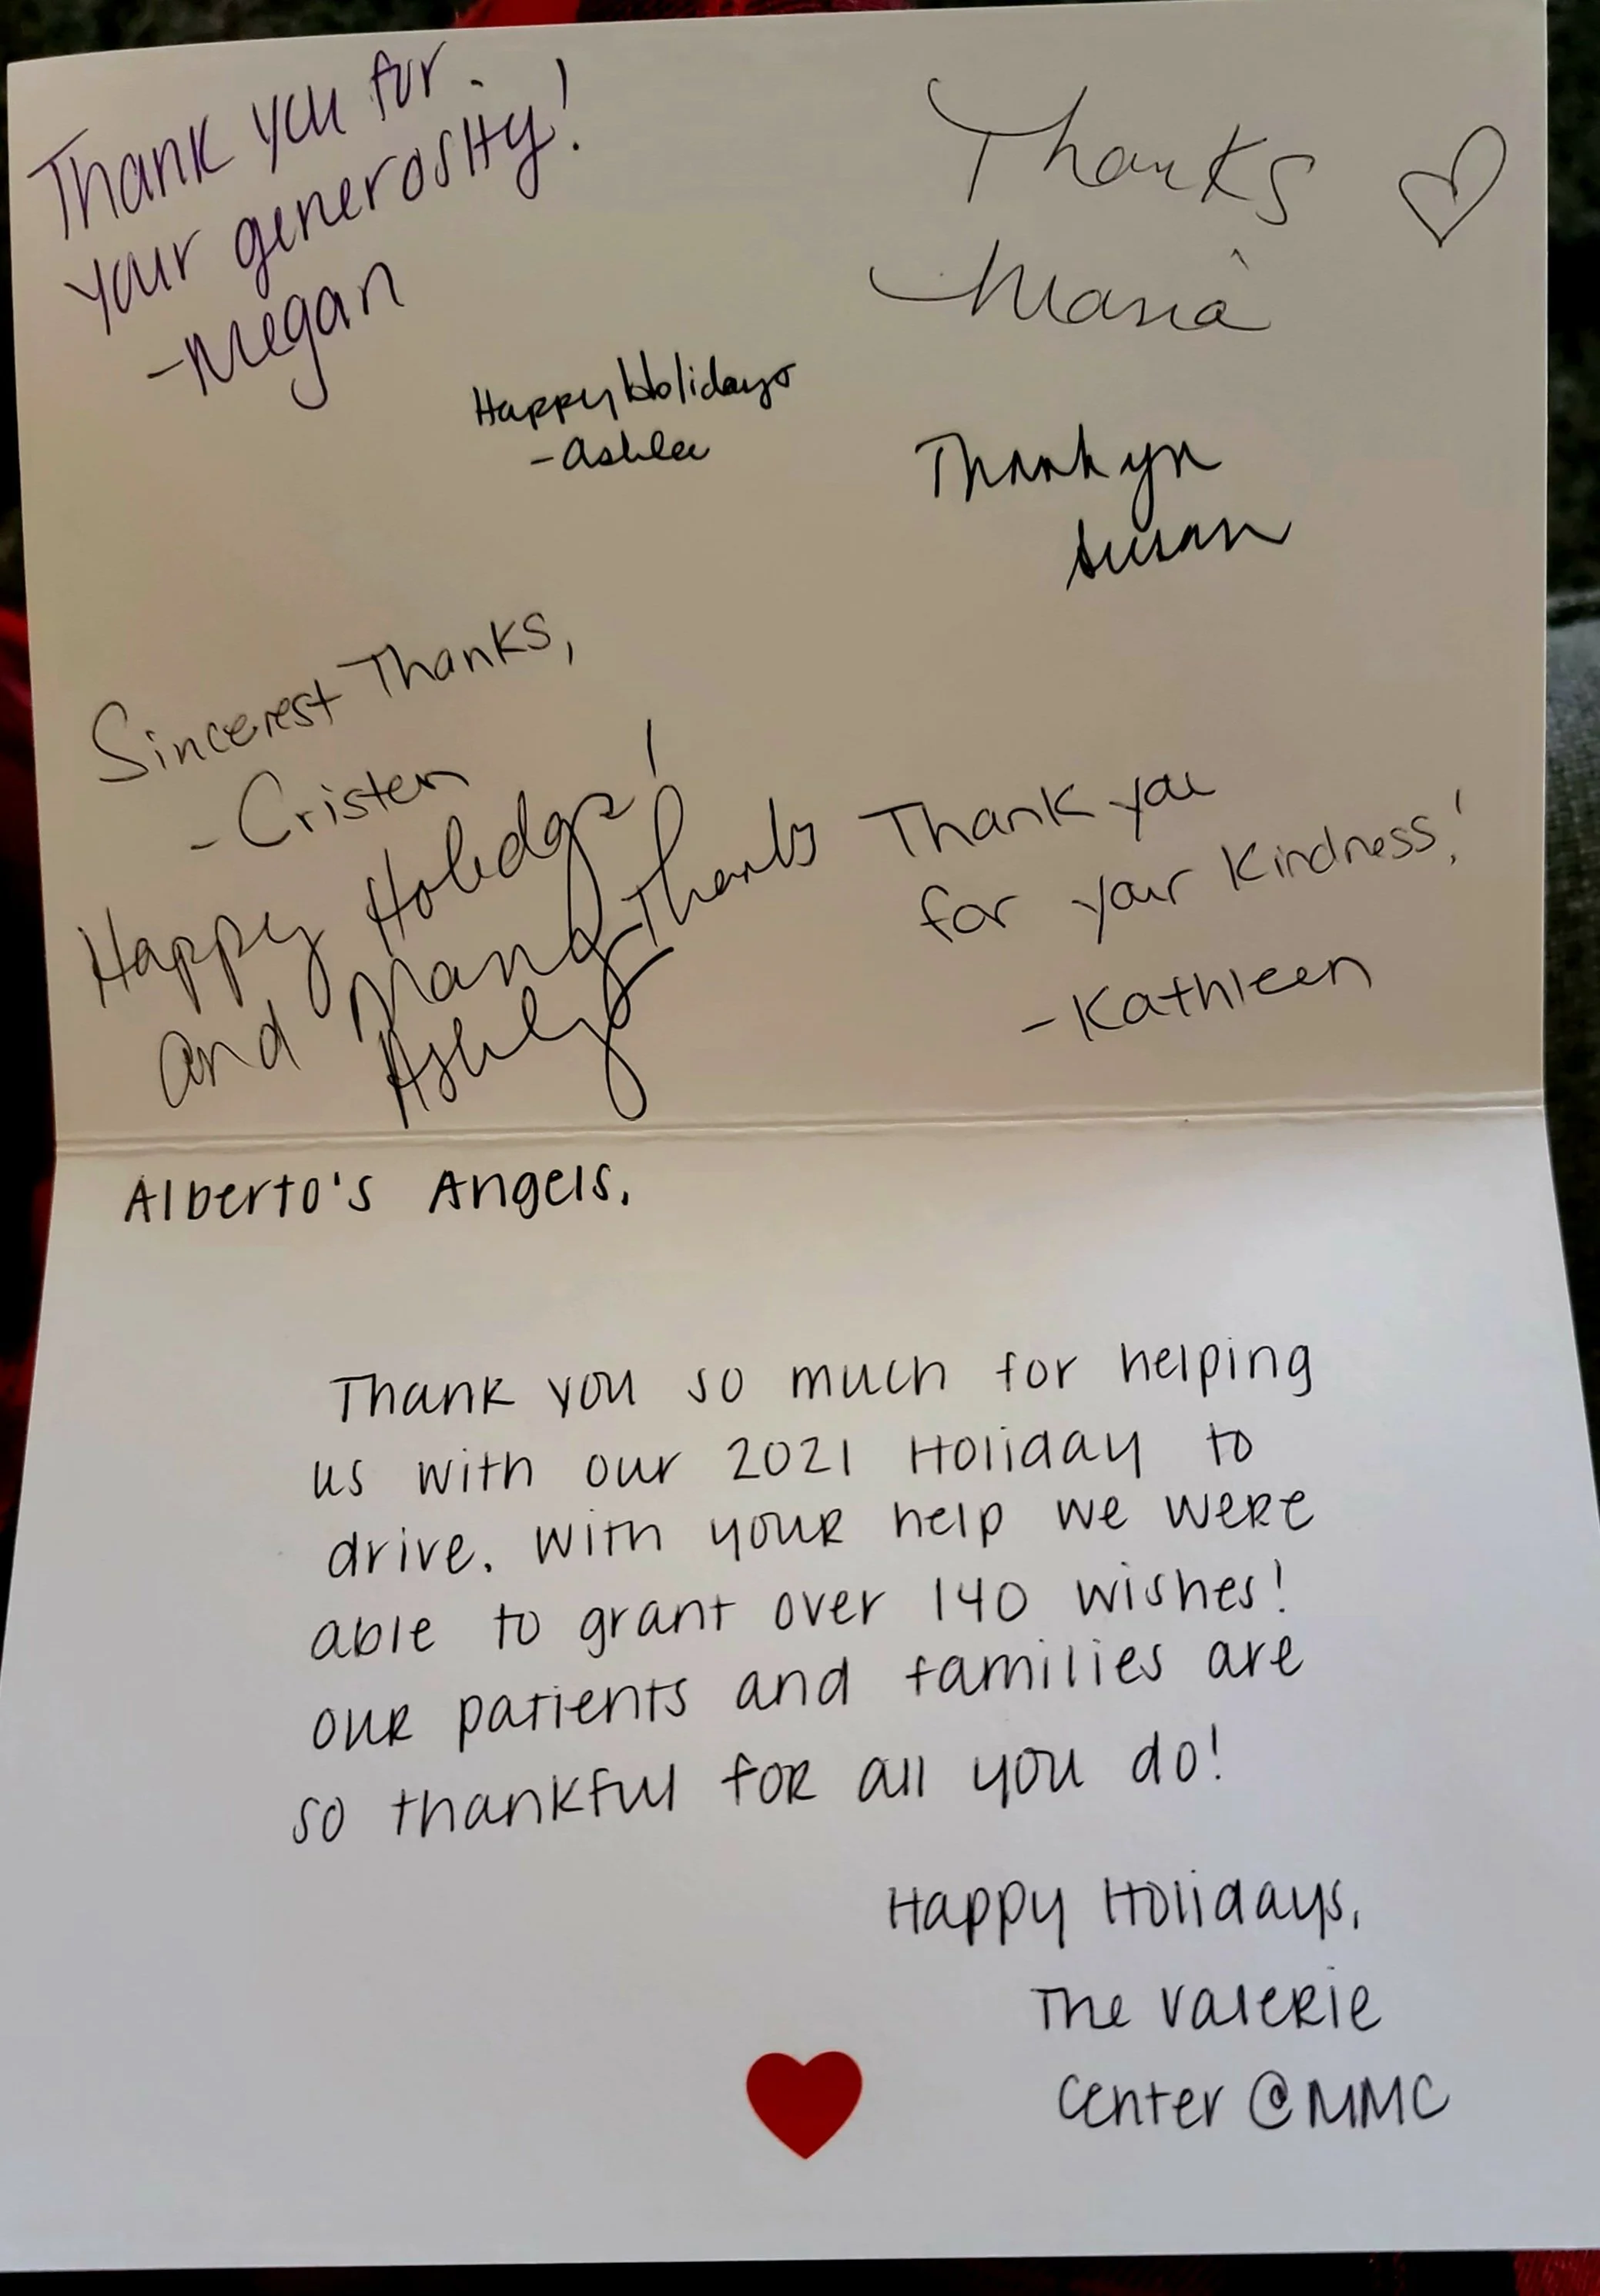 Thank you for
your generosity!
-Megan
Thanks
Maria
Happy Holidays
-Ashlee
Thank you
Susan
Sincerest Thanks,
-Cristen
Happy Holidays!
and Many Thanks
Ashley
Thank you
for your kindness!
-Kathleen
Alberto's Angels,
Thank you so much for helping
us with our 2021 Holiday to
drive. With your help we were
able to grant over 140 wishes!
Our patients and families are
so thankful for all you do!
Happy Holidays,
The Valerie
Center @MMC